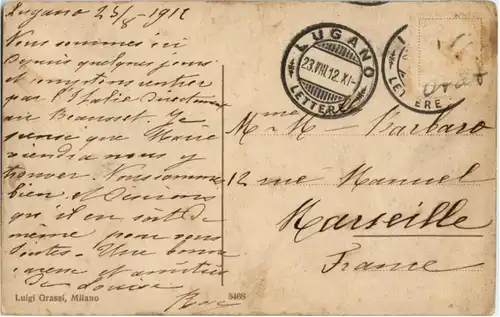 Lugano 23/8 - 1912
Nous sommes ici
depuis quelques jours
et nous rentrer
par l'Italie directement
au Beausset. Je
pense que Marie
viendra nous y
trouver. Nous sommes
bien et désirons
qu'il en soit de
même pour vous
toutes. Une bonne
caresse et amitiés
de Louise
LUGANO
23.VIII.12.XI-
LETTERE
LETTERE
Mme M. Barbaro
12 rue Manuel
Marseille
France
Luigi Grassi, Milano
8468